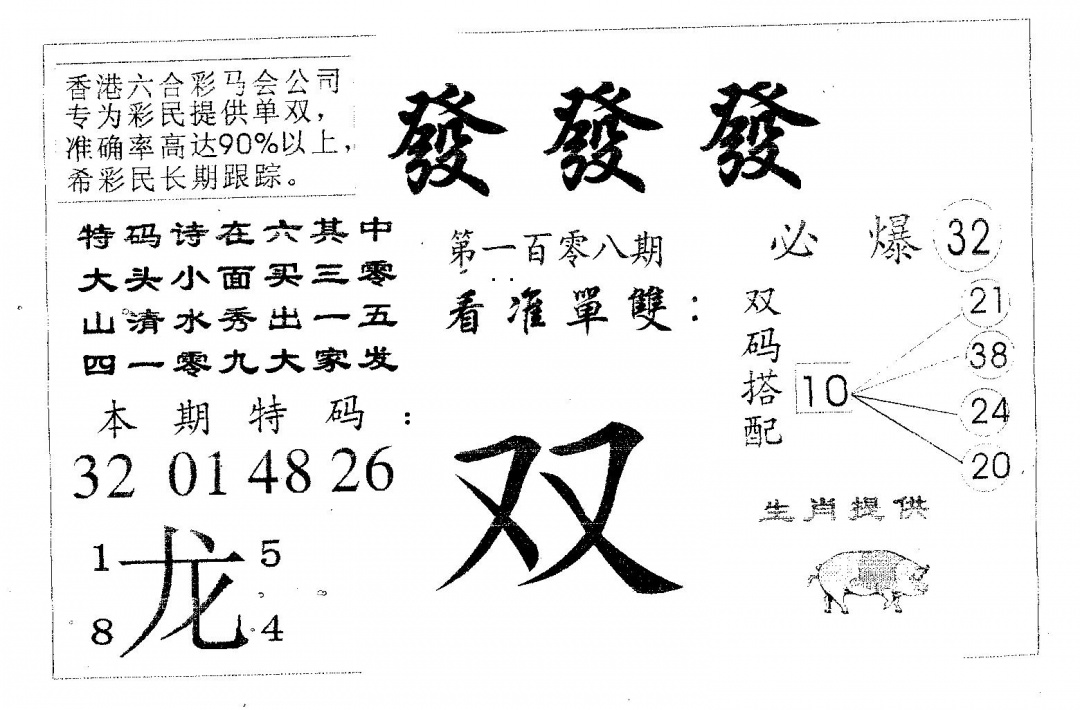 香港六合彩马会公司
专为彩民提供单双，
准确率高达90%以上，
希彩民长期跟踪。
發發發
特码诗在六其中
大头小面买三零
山清水秀出一五
四一零九大家发
本期特码：
32 01 48 26
1 5
龙
8 4
第一百零八期
看准單雙：
双
必爆 32
双码搭配
10
21
38
24
20
生肖提供